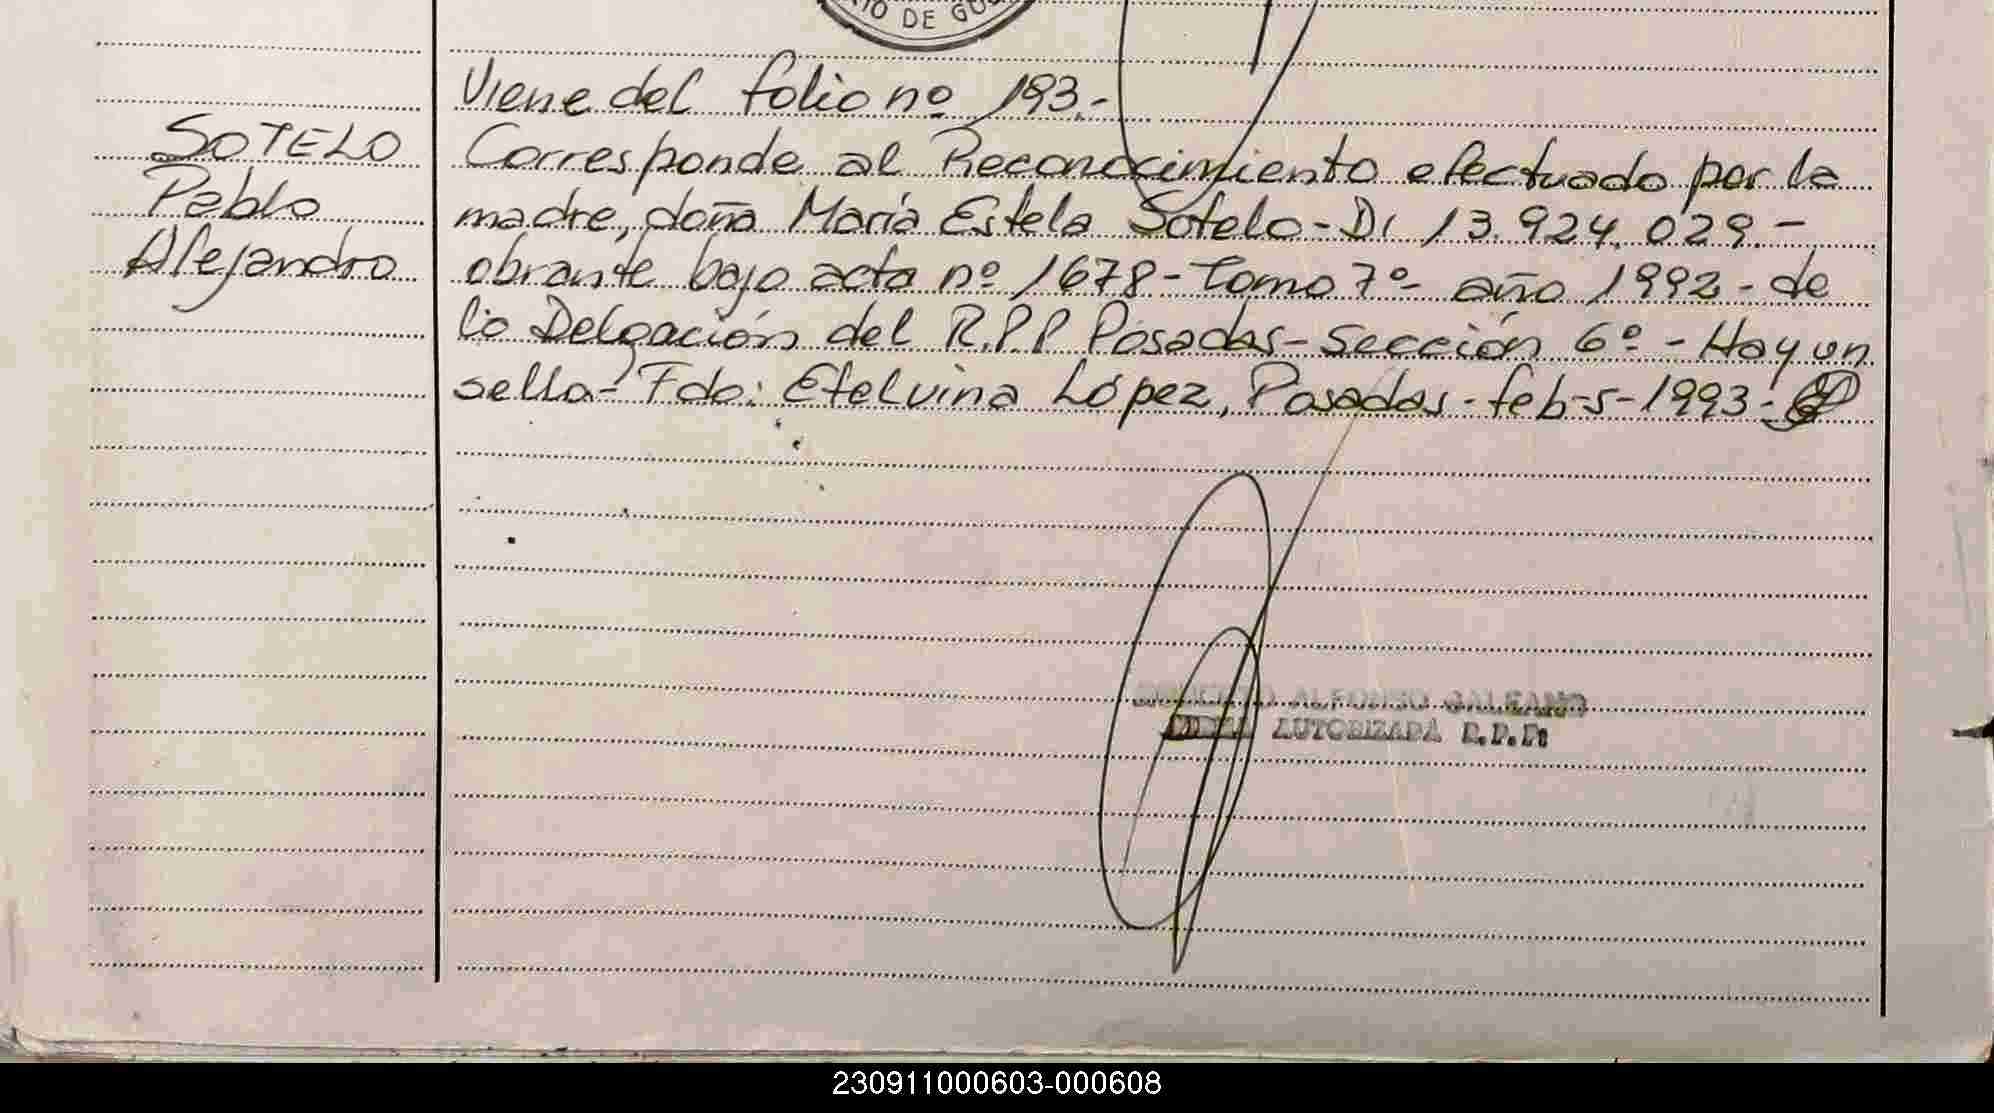 IO DE GO
Viene del folio nº 193.-
SOTELO
Pablo
Alejandro
Corresponde al Reconocimiento efectuado por la
madre, doña María Estela Sotelo - DI 13.924.029.-
obrante bajo acta nº 1678 - tomo 7º - año 1992 - de
la Delgación del R.P.P Posadas - Sección 6º - Hay un
sello - Fdo: Etelvina López, Posadas - feb-5-1993 -
ALFONSO GALEANO
FIRMA AUTORIZADA R.P.P.
230911000603-000608